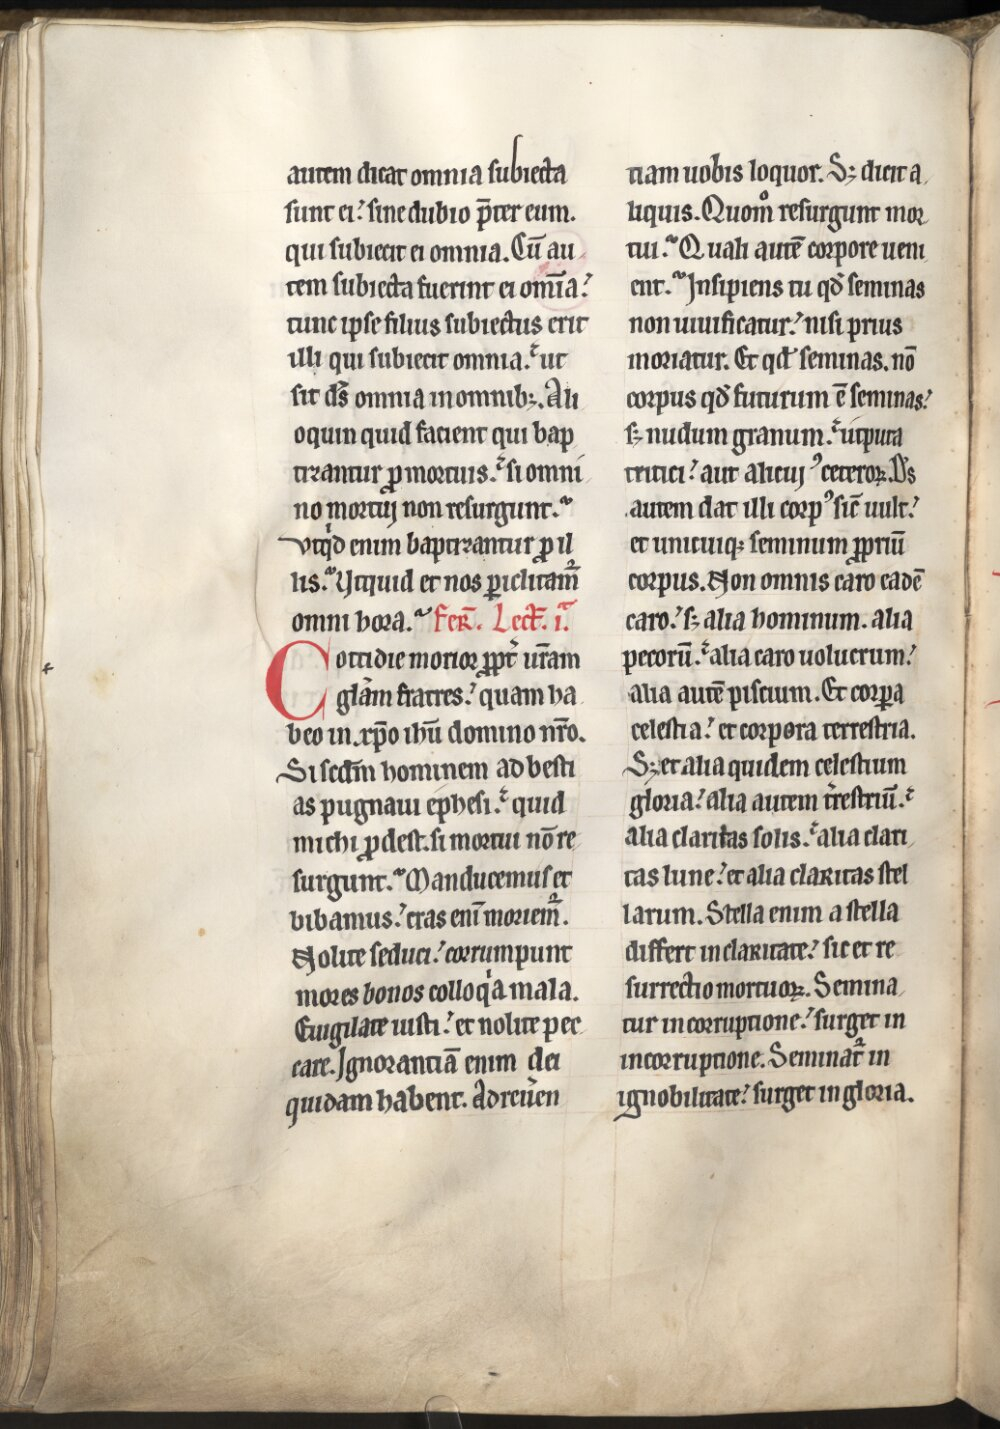 autem dicat omnia subiecta
sunt ei? sine dubio p̄ter eum.
qui subiecit ei omnia. Cū au
tem subiecta fuerint ei om̄ia?
tunc ipse filius subiectus erit
illi qui subiecit omnia. ut
sit d̄s omnia in omnibꝫ. Ali
oquin quid facient qui bap
tizantur ꝓ mortuis. si omni
no mortuj non resurgunt.
vtqͥd enim baptizantur ꝓ il
lis. Vtquid et nos ꝑiclitam̄
omni hora. Fer̄. Lect̄. i.ͣ
Cottidie morior ꝓpt̄ ur̄am
gl̄am fratres? quam ha
beo in xp̄o ih̄u domino nr̄o.
Si sedm̄ hominem ad besti
as pugnaui ephesi. quid
michi ꝓdest. si mortui nō re
surgunt. Manducemus et
bibamus? cras eni̅ moriem̄.
Nolite seduci? corrumpunt
mores bonos colloqͥa mala.
Euigilate iusti? et nolite pec
care. Ignorantiā enim dei
quidam habent. Ad reuen̄
tiam uobis loquor. Sꝫ dicit a
liquis. Quom̊ resurgunt mor
tui. Quali autē corpore ueni
ent. Insipiens tu qd̄ seminas
non uiuificatur? nisi prius
moriatur. Et qd̄ seminas. nō
corpus qd̄ futurum ē seminas?
sꝫ nudum granum. utputa
tritici? aut alicujꝰ ceteroꝝ. D̄s
autem dat illi corpꝰ sic̄ uult?
et unicuiqꝫ seminum ꝓpriū
corpus. Non omnis caro eadē
caro? sꝫ alia hominum. alia
pecorū. alia caro uolucrum?
alia autē piscium. Et corꝑa
celestia? et corpora terrestria.
Sꝫ et alia quidem celestium
gloria? alia autem t̄restriū.
alia claritas solis. alia clari
tas lune? et alia claritas stel
larum. Stella enim a stella
differt in claritate? sic et re
surrectio mortuoꝝ. Semina
tur in corruptione? surget in
incorruptione. Seminat̄ in
ignobilitate? surget in gloria.